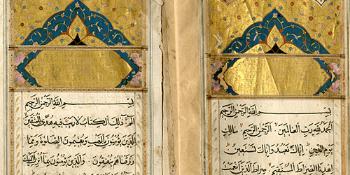 بسم الله الرحمن الرحيم
الحمد لله رب العالمين الرحمن الرحيم مالك
يوم الدين اياك نعبد واياك نستعين
اهدنا الصراط المستقيم صراط الذين انعمت
بسم الله الرحمن الرحيم
الم ذلك الكتاب لا ريب فيه هدى للمتقين
الذين يؤمنون بالغيب ويقيمون الصلوة ومما
رزقناهم ينفقون والذين يؤمنون بما انزل اليك